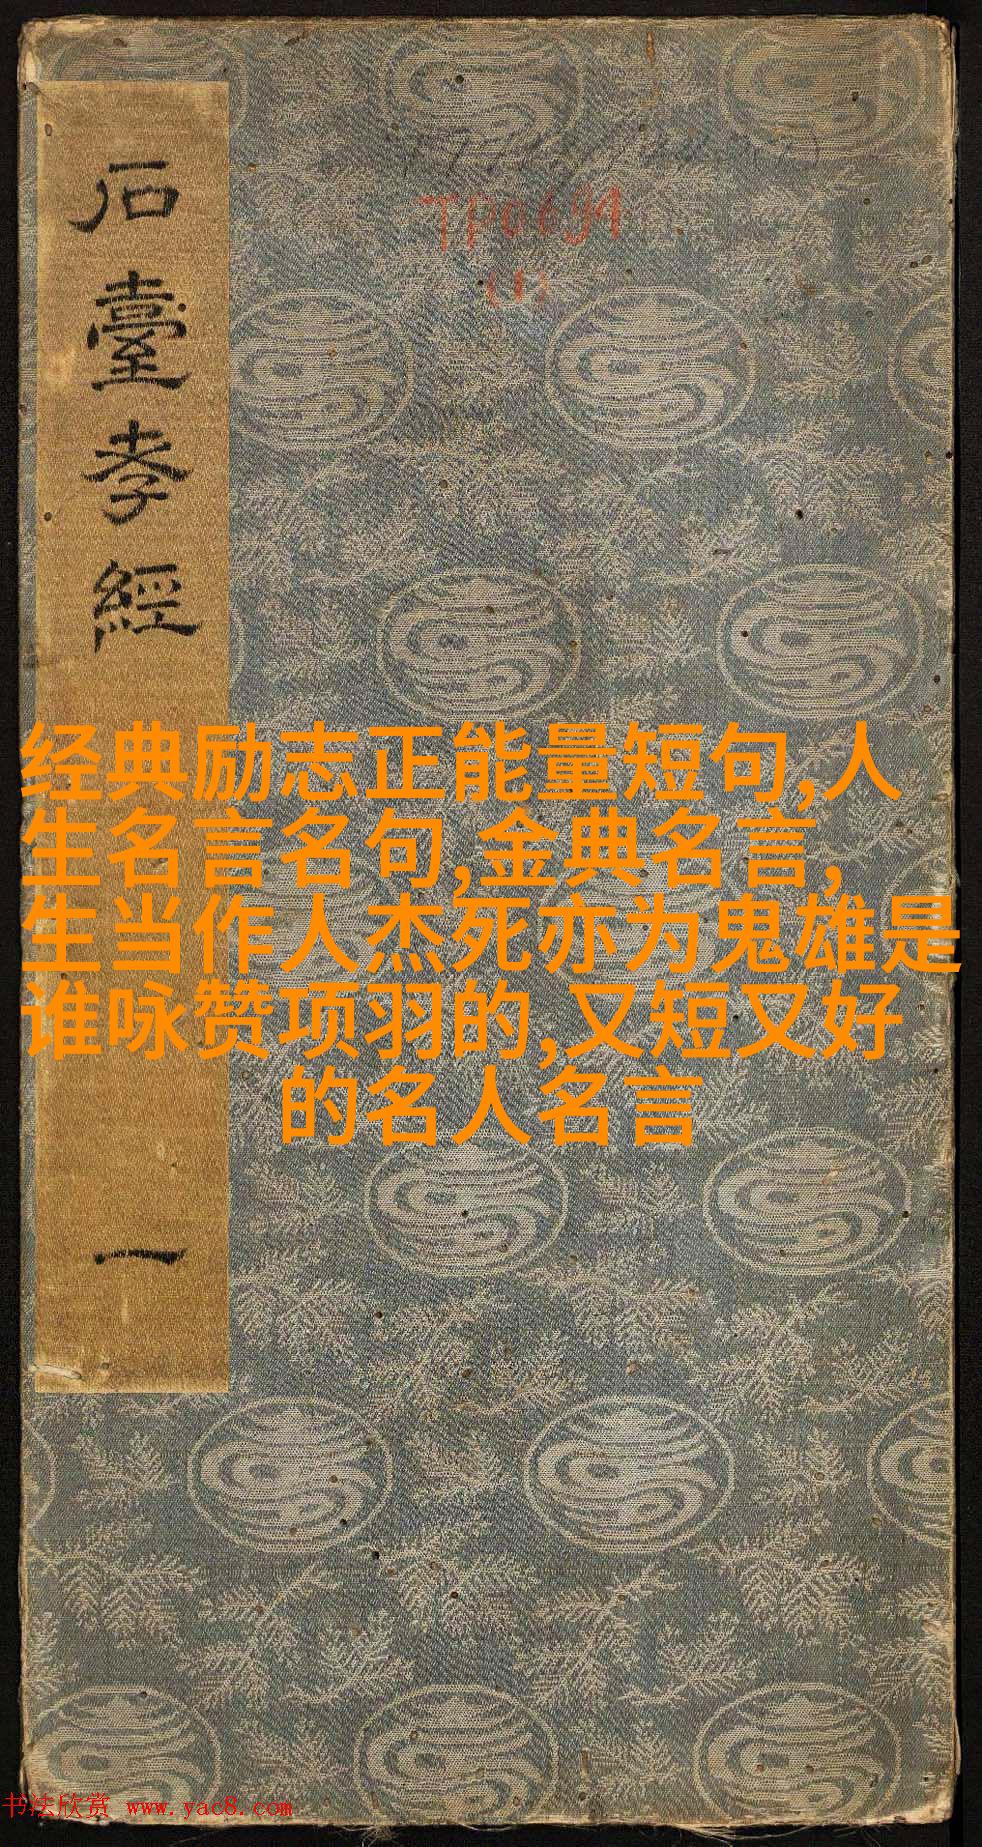 石臺孝經
一
TP0691
(1)
经典励志正能量短句,人
生名言名句,金典名言,
生当作人杰死亦为鬼雄是
谁咏赞项羽的,又短又好
的名人名言
书法欣赏 www.yac8.com